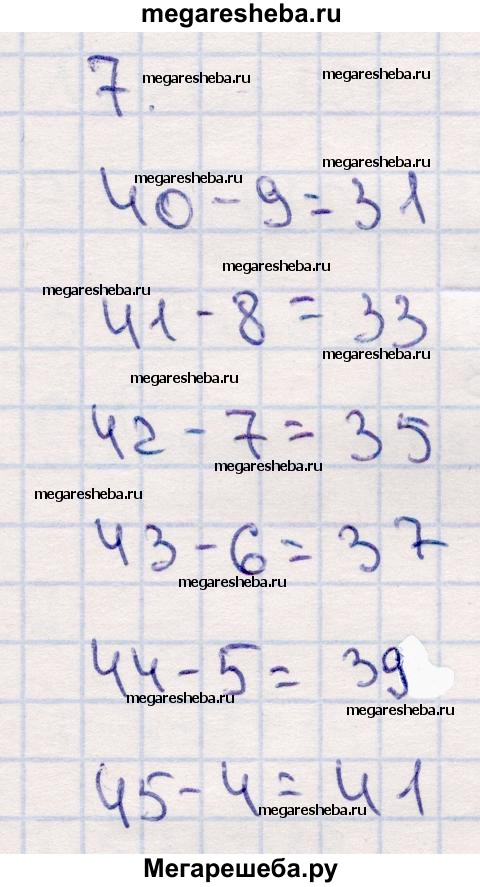 megaresheba.ru
7.
megaresheba.ru
megaresheba.ru
megaresheba.ru
megaresheba.ru
40 - 9 = 31
megaresheba.ru
megaresheba.ru
41 - 8 = 33
megaresheba.ru
megaresheba.ru
42 - 7 = 35
megaresheba.ru
megaresheba.ru
43 - 6 = 37
megaresheba.ru
44 - 5 = 39
megaresheba.ru
megaresheba.ru
45 - 4 = 41
megaresheba.ru
Мегарешеба.ру